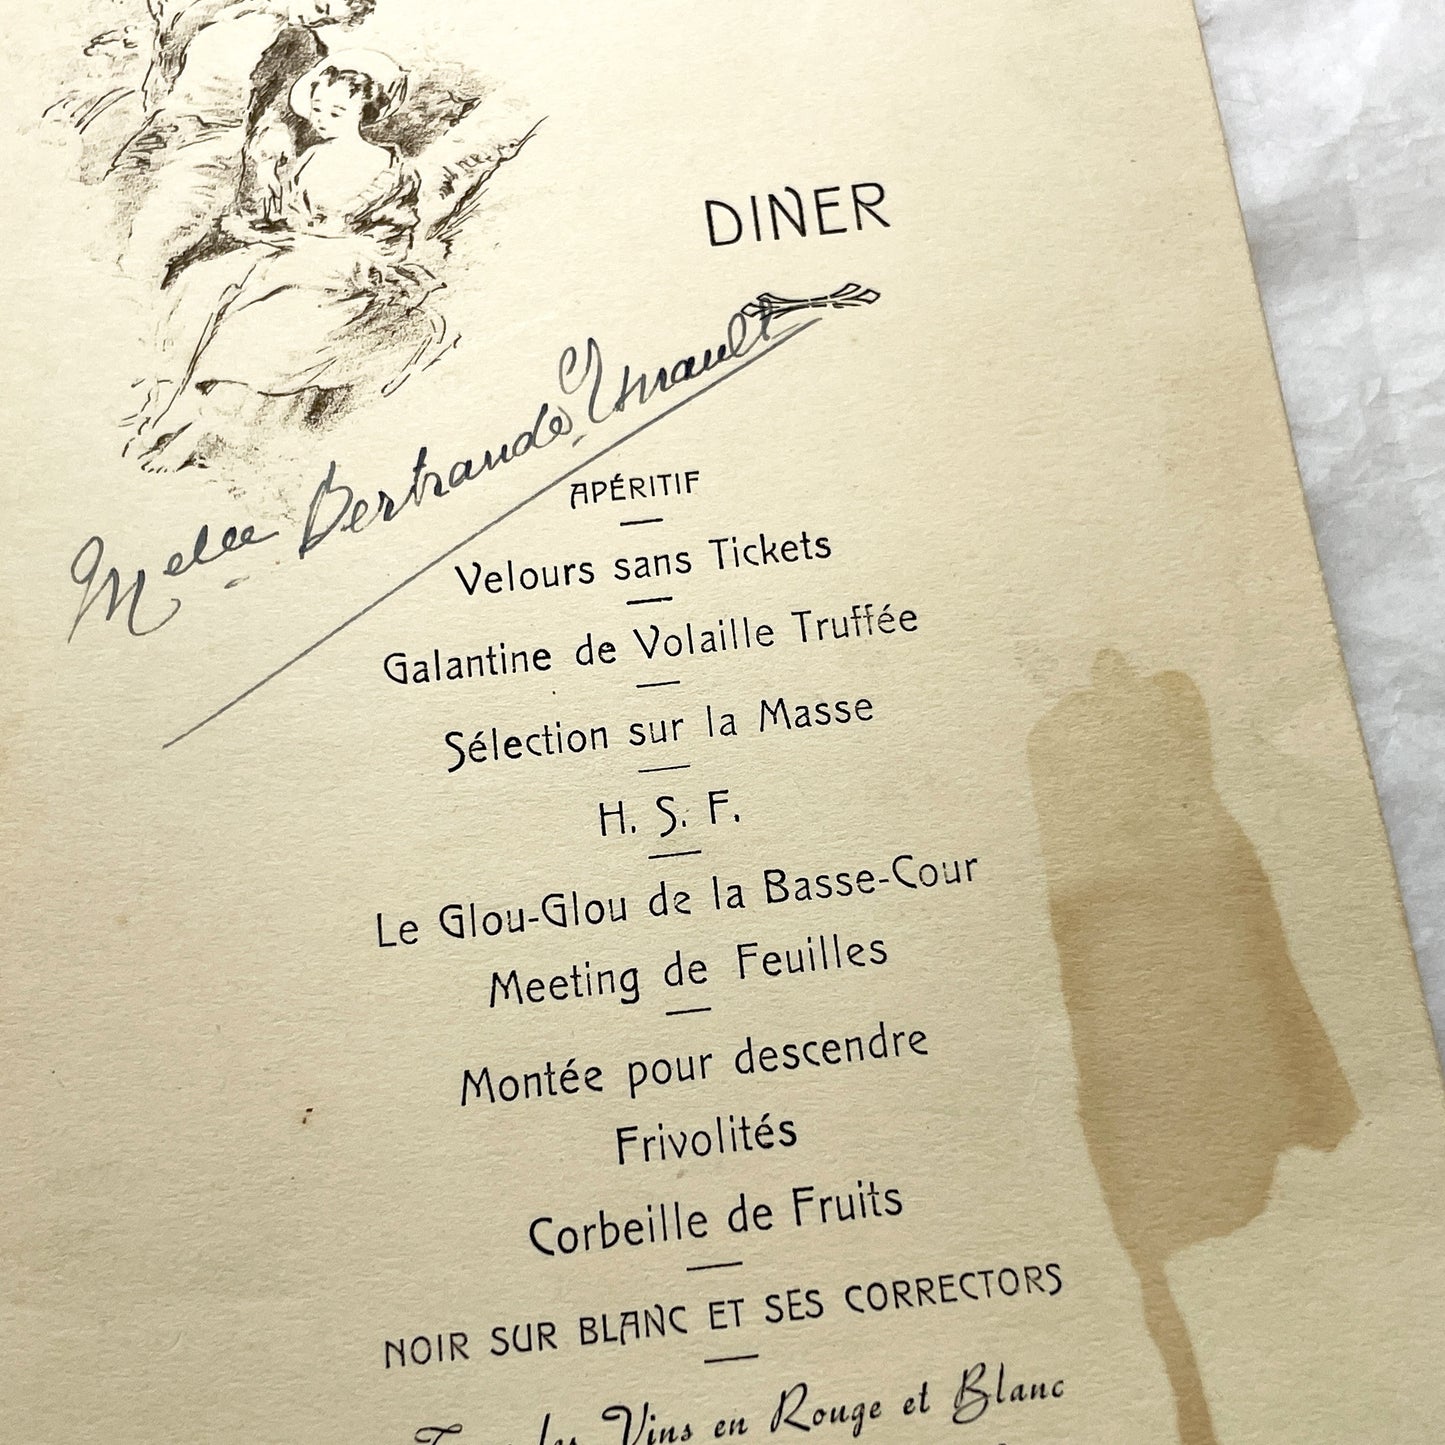 DINER
Melle Bertrande
APÉRITIF
Velours sans Tickets
Galantine de Volaille Truffée
Sélection sur la Masse
H. S. F.
Le Glou-Glou de la Basse-Cour
Meeting de Feuilles
Montée pour descendre
Frivolités
Corbeille de Fruits
NOIR SUR BLANC ET SES CORRECTORS
Vins en Rouge et Blanc